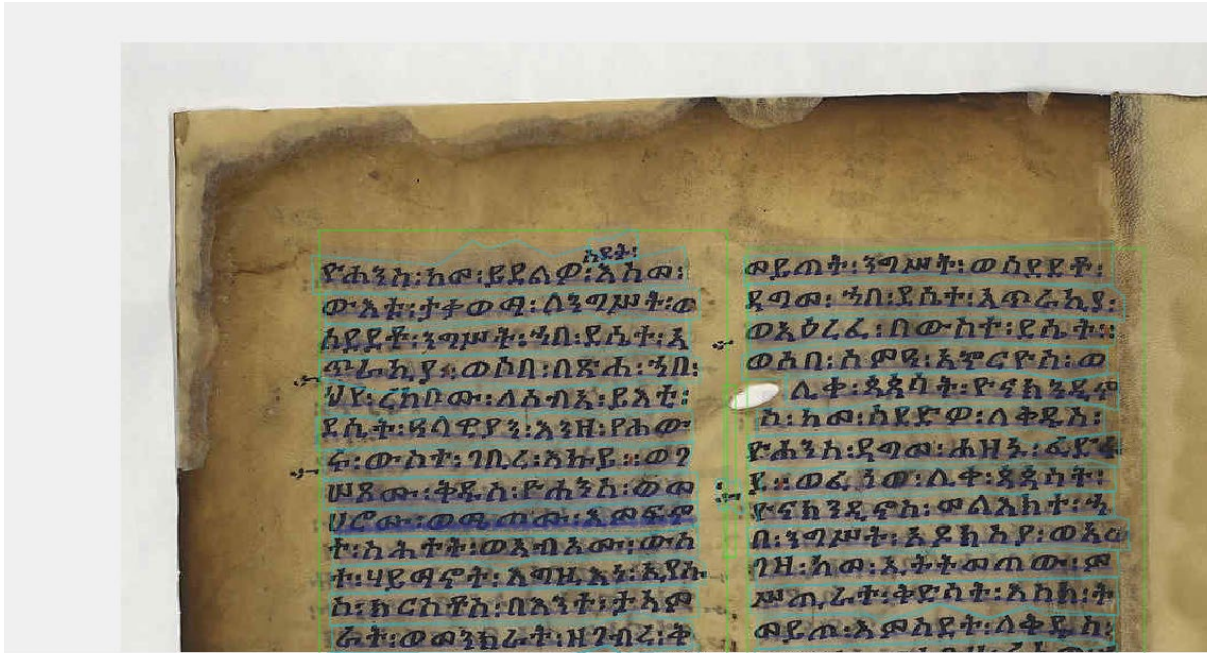 እደት፡
ዮሐንስ፡ ከመ፡ ይደልዎ፡ እስመ፡
ውእቱ፡ ታቀውማ፡ ለንግሥት፡ ወ
ሰደደቶ፡ ንግሥት፡ ኀበ፡ ደሴተ፡ አ
ጥራኪያ። ወሶበ፡ በጽሐ፡ ኀበ፡
ህየ፡ ረከቦሙ፡ ለሰብአ፡ ይእቲ፡
ደሴት፡ ዓላዊያን፡ እንዘ፡ የሐው
ሩ፡ ውስተ፡ ገቢረ፡ እኩይ። ወገ
ሠጾሙ፡ ቅዱስ፡ ዮሐንስ፡ ወመ
ሀሮሙ፡ ወሜጠሙ፡ እመፍሞ
ተ፡ ስሕተት፡ ወአብአሙ፡ ውስ
ተ፡ ሃይማኖት፡ እግዚእነ፡ ኢየሱ
ስ፡ ክርስቶስ፡ በእንተ፡ ታአም
ራት፡ ወመንክራት፡ ዘገብረ፡ ቅ
መይጠት፡ ንግሥት፡ ወሰደደቶ፡
ዳግመ፡ ኀበ፡ ደሴተ፡ አጥራኪያ፡
ወአዕረፈ፡ በውስተ፡ ደሴት።
ወሶበ፡ ሰምዓ፡ አኖርዮስ፡ ወ
ሊቀ፡ ጳጳሳት፡ ዮናክንዲኖ
ስ፡ ከመ፡ ሰደድዎ፡ ለቅዱስ፡
ዮሐንስ፡ ዳግመ፡ ሐዘኑ፡ ፈድፋ
ደ። ወፈነወ፡ ሊቀ፡ ጳጳሳት፡
ዮናክንዲኖስ፡ መልእክተ፡ ኀ
በ፡ ንግሥት፡ አይክስያ፡ ወአው
ገዘ፡ ከመ፡ ኢትትመጠው፡ ም
ሥጢራተ፡ ቅድሳት፡ እስከ፡ ት
መይጦ፡ እምስደት፡ ለቅዱስ፡